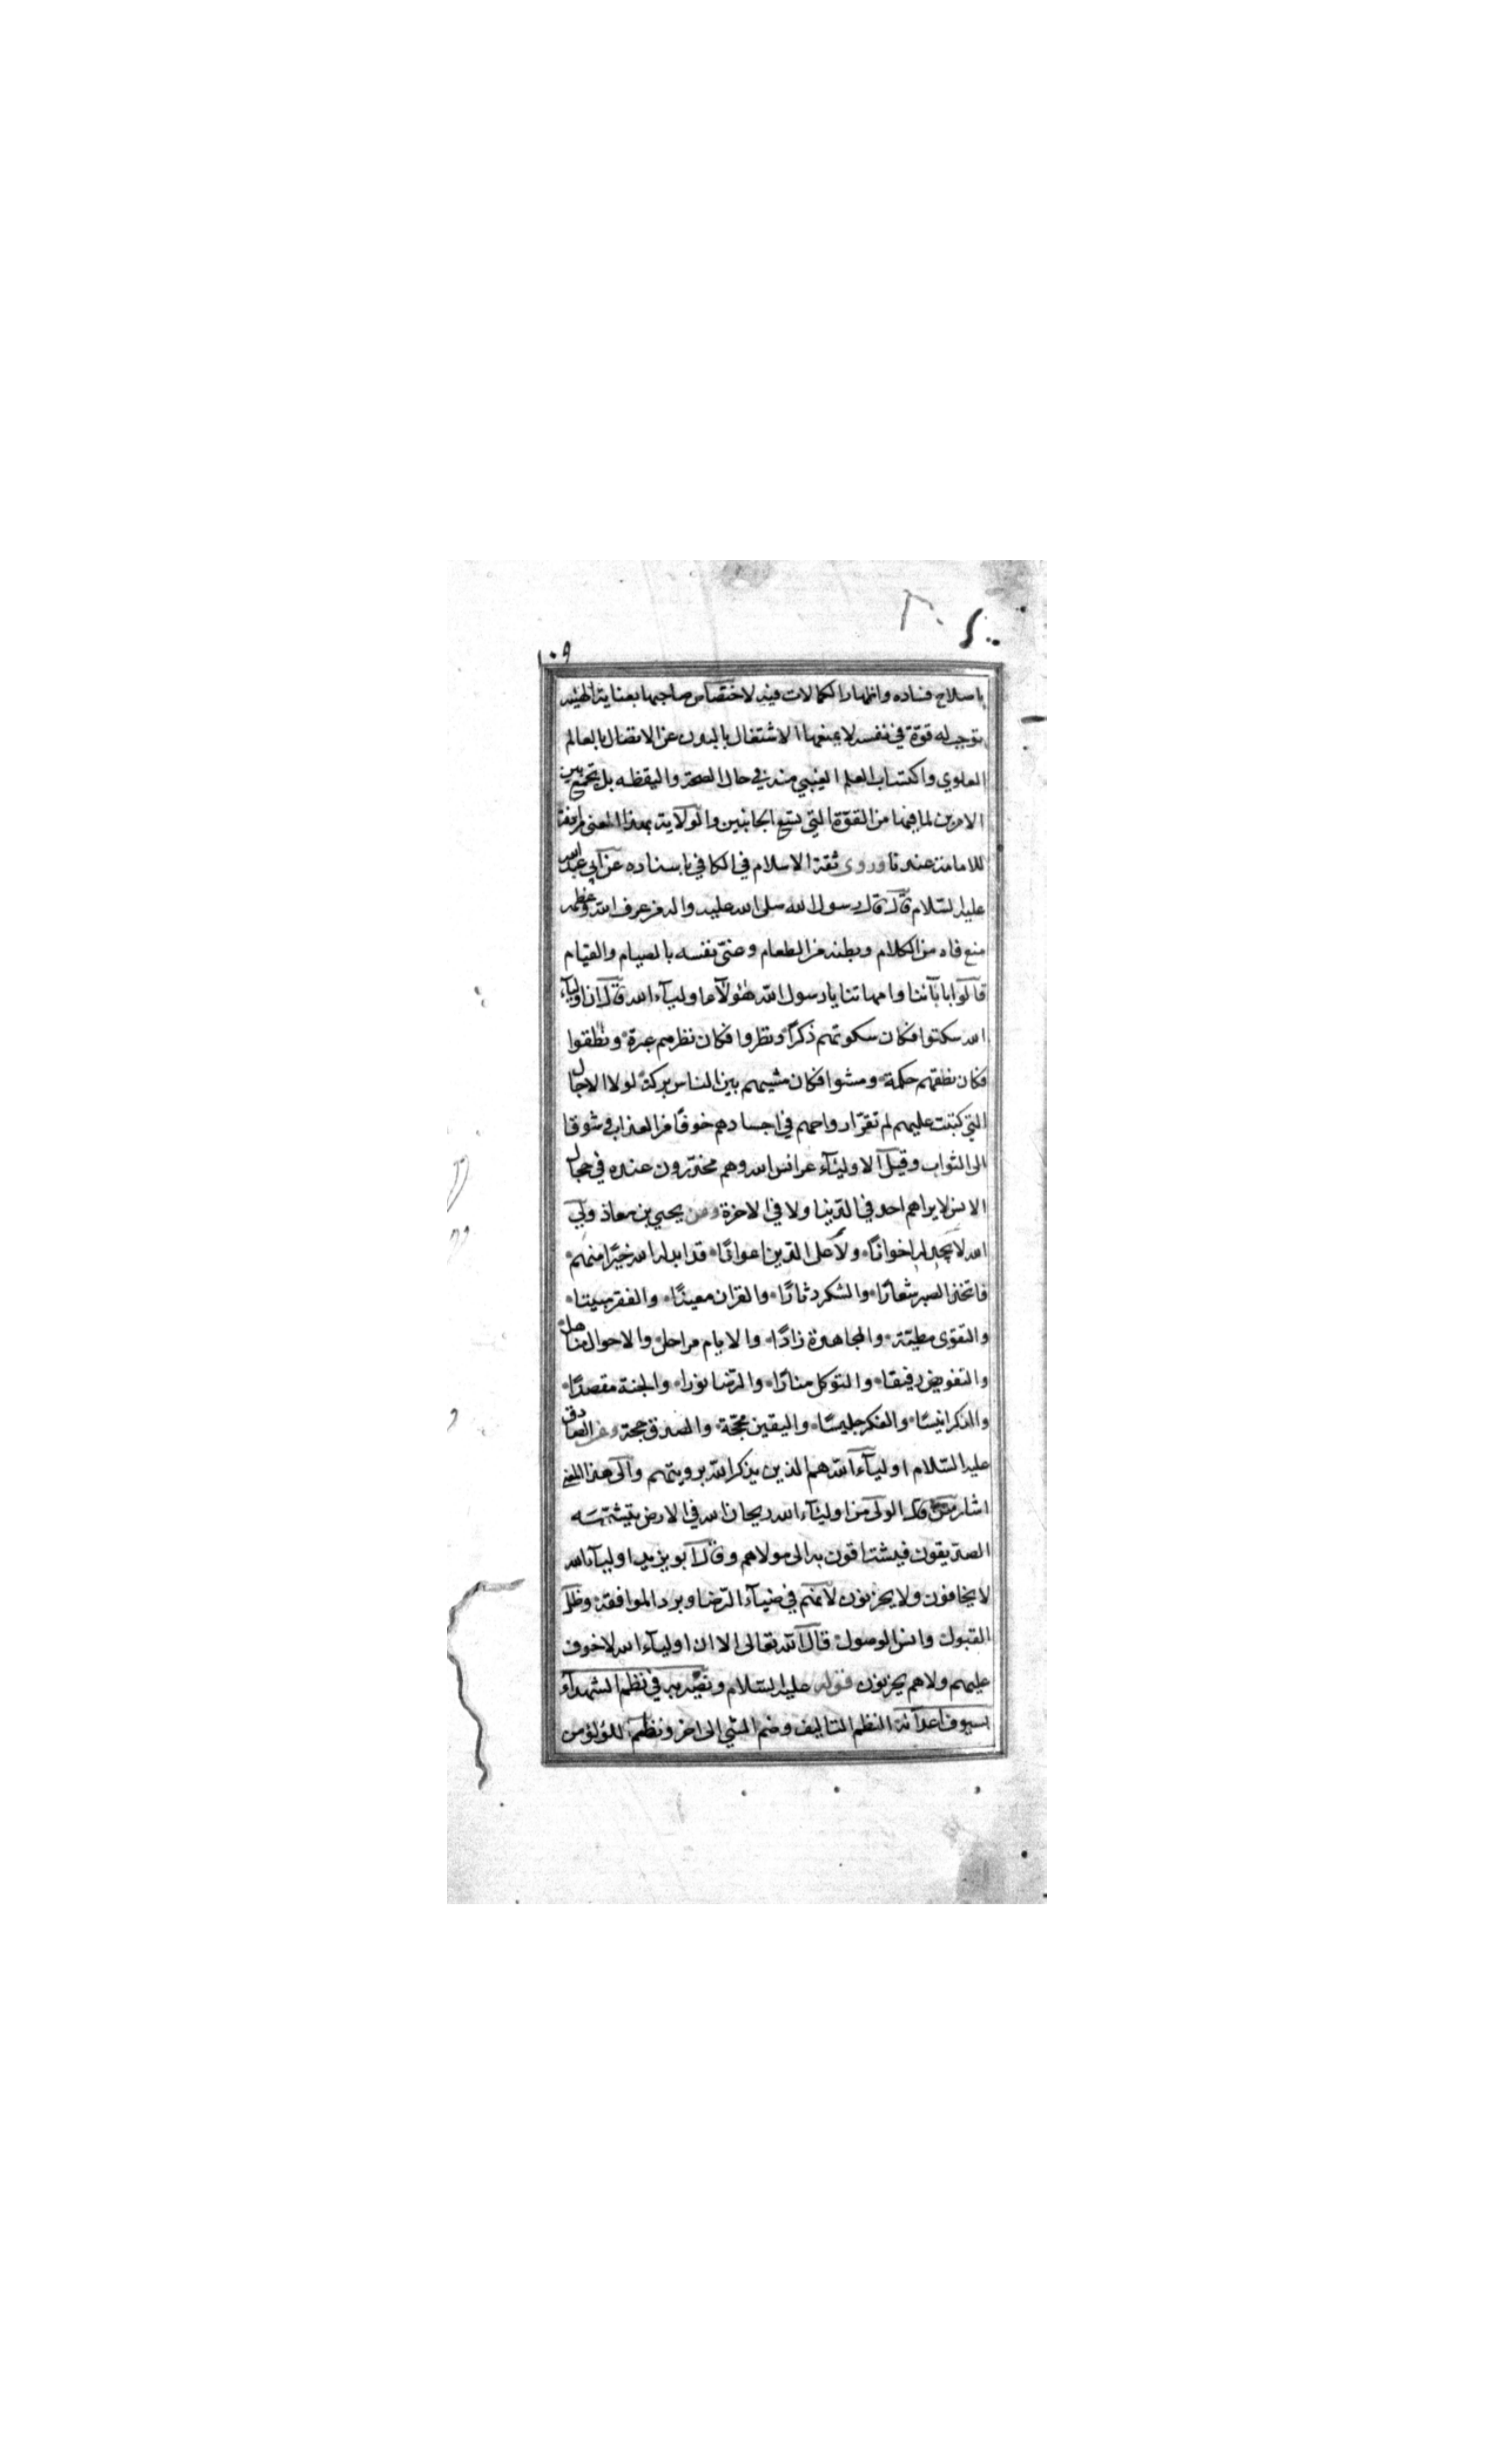 ١٠٩
باصلاح فساده واظهار الكمالات فيه لاختصاص صاحبها بعناية الهية
توجب له قوة في نفسه لا يمنعها الاشتغال بالبدن عن الاتصال بالعالم
العلوي واكتساب العلم الغيبي منه في حال الصحة واليقظه بل تجمع بين
الامرين لما فيها من القوّة التي تسع الجانبين والولاية بهذا المعنى مرادفة
للامامة عندنا وروى ثقة الاسلام في الكافي باسناده عن ابي عبد الله
عليه السّلام قال قال رسول الله صلى الله عليه واله من عرف الله وعظمه
منع فاه من الكلام وبطنه من الطعام وعنّى نفسه بالصيام والقيام
قالوا بابآئنا وامهاتنا يا رسول الله هؤلآء اوليآء الله قال ان اوليآء
الله سكتوا فكان سكوتهم ذكرًا ونظروا فكان نظرهم عبرة ونطقوا
فكان نطقهم حكمة ومشوا فكان مشيهم بين الناس بركة لولا الاجال
التي كتبت عليهم لم تقرّ ارواحهم في اجسادهم خوفًا من العذاب وشوقا
الى الثواب وقيل الاوليآء عرائس الله وهم مخدّرون عنده في حجال
الانس لا يراهم احد في الدّنيا ولا في الاخرة وعن يحيي بن معاذ ولي
الله لا يجد له اخوانًا ولا على الدّين اعوانًا قد ابدله الله خيرًا منهم
فاتخذ الصبر شعارًا والشكر دثارًا والقران معينًا والفقر بيتا
والتقوى مطيّة والمجاهدة زادًا والايام مراحل والاحوال مناهل
والتفويض رفيقا والتوكل منارًا والرّضا نورا والجنة مقصدًا
والذكر انيسًا والفكر جليسًا واليقين محجّة والصدق حجة وعن الصادق
عليه السّلام اوليآء الله هم الذين يذكر الله برويتهم والى هذا المعنى
اشار من قال الولى من اوليآء الله ريحان الله في الارض يتشممه
الصدّيقون فيشتاقون به الى مولاهم وقال ابو يزيد اوليآء الله
لا يخافون ولا يحزنون لانّهم في ضيآء الرّضا وبرد الموافقة وظل
القبول وانس الوصول قال الله تعالى الا ان اوليآء الله لا خوف
عليهم ولا هم يحزنون قوله عليه السّلام ونصير به في نظم الشهدآء
بسيوف اعدآئه النظم التاليف وضم الشي الى اخر ونظم اللؤلؤ من